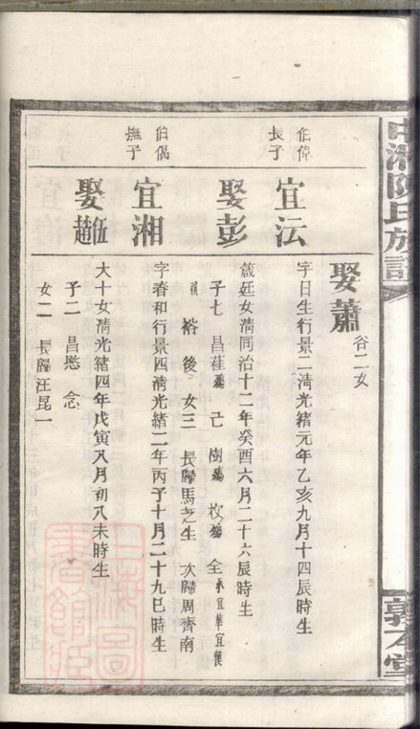 陳氏族譜
敦本堂
谷二女
娶蕭
伯偉長子
宜沅
字日生行景二清光緒元年乙亥九月十四辰時生
娶彭
箴廷女清同治十二年癸酉六月二十六辰時生
子七 昌蓷 己 樹 枚 全
裕 後 女三 長歸馬芝生 次歸周齊南
伯偶撫子
宜湘
字春和行景四清光緒二年丙子十月二十九巳時生
娶
大十女清光緒四年戊寅八月初八未時生
子二 昌愍 念
女一 長歸汪昆一
上海圖書館藏